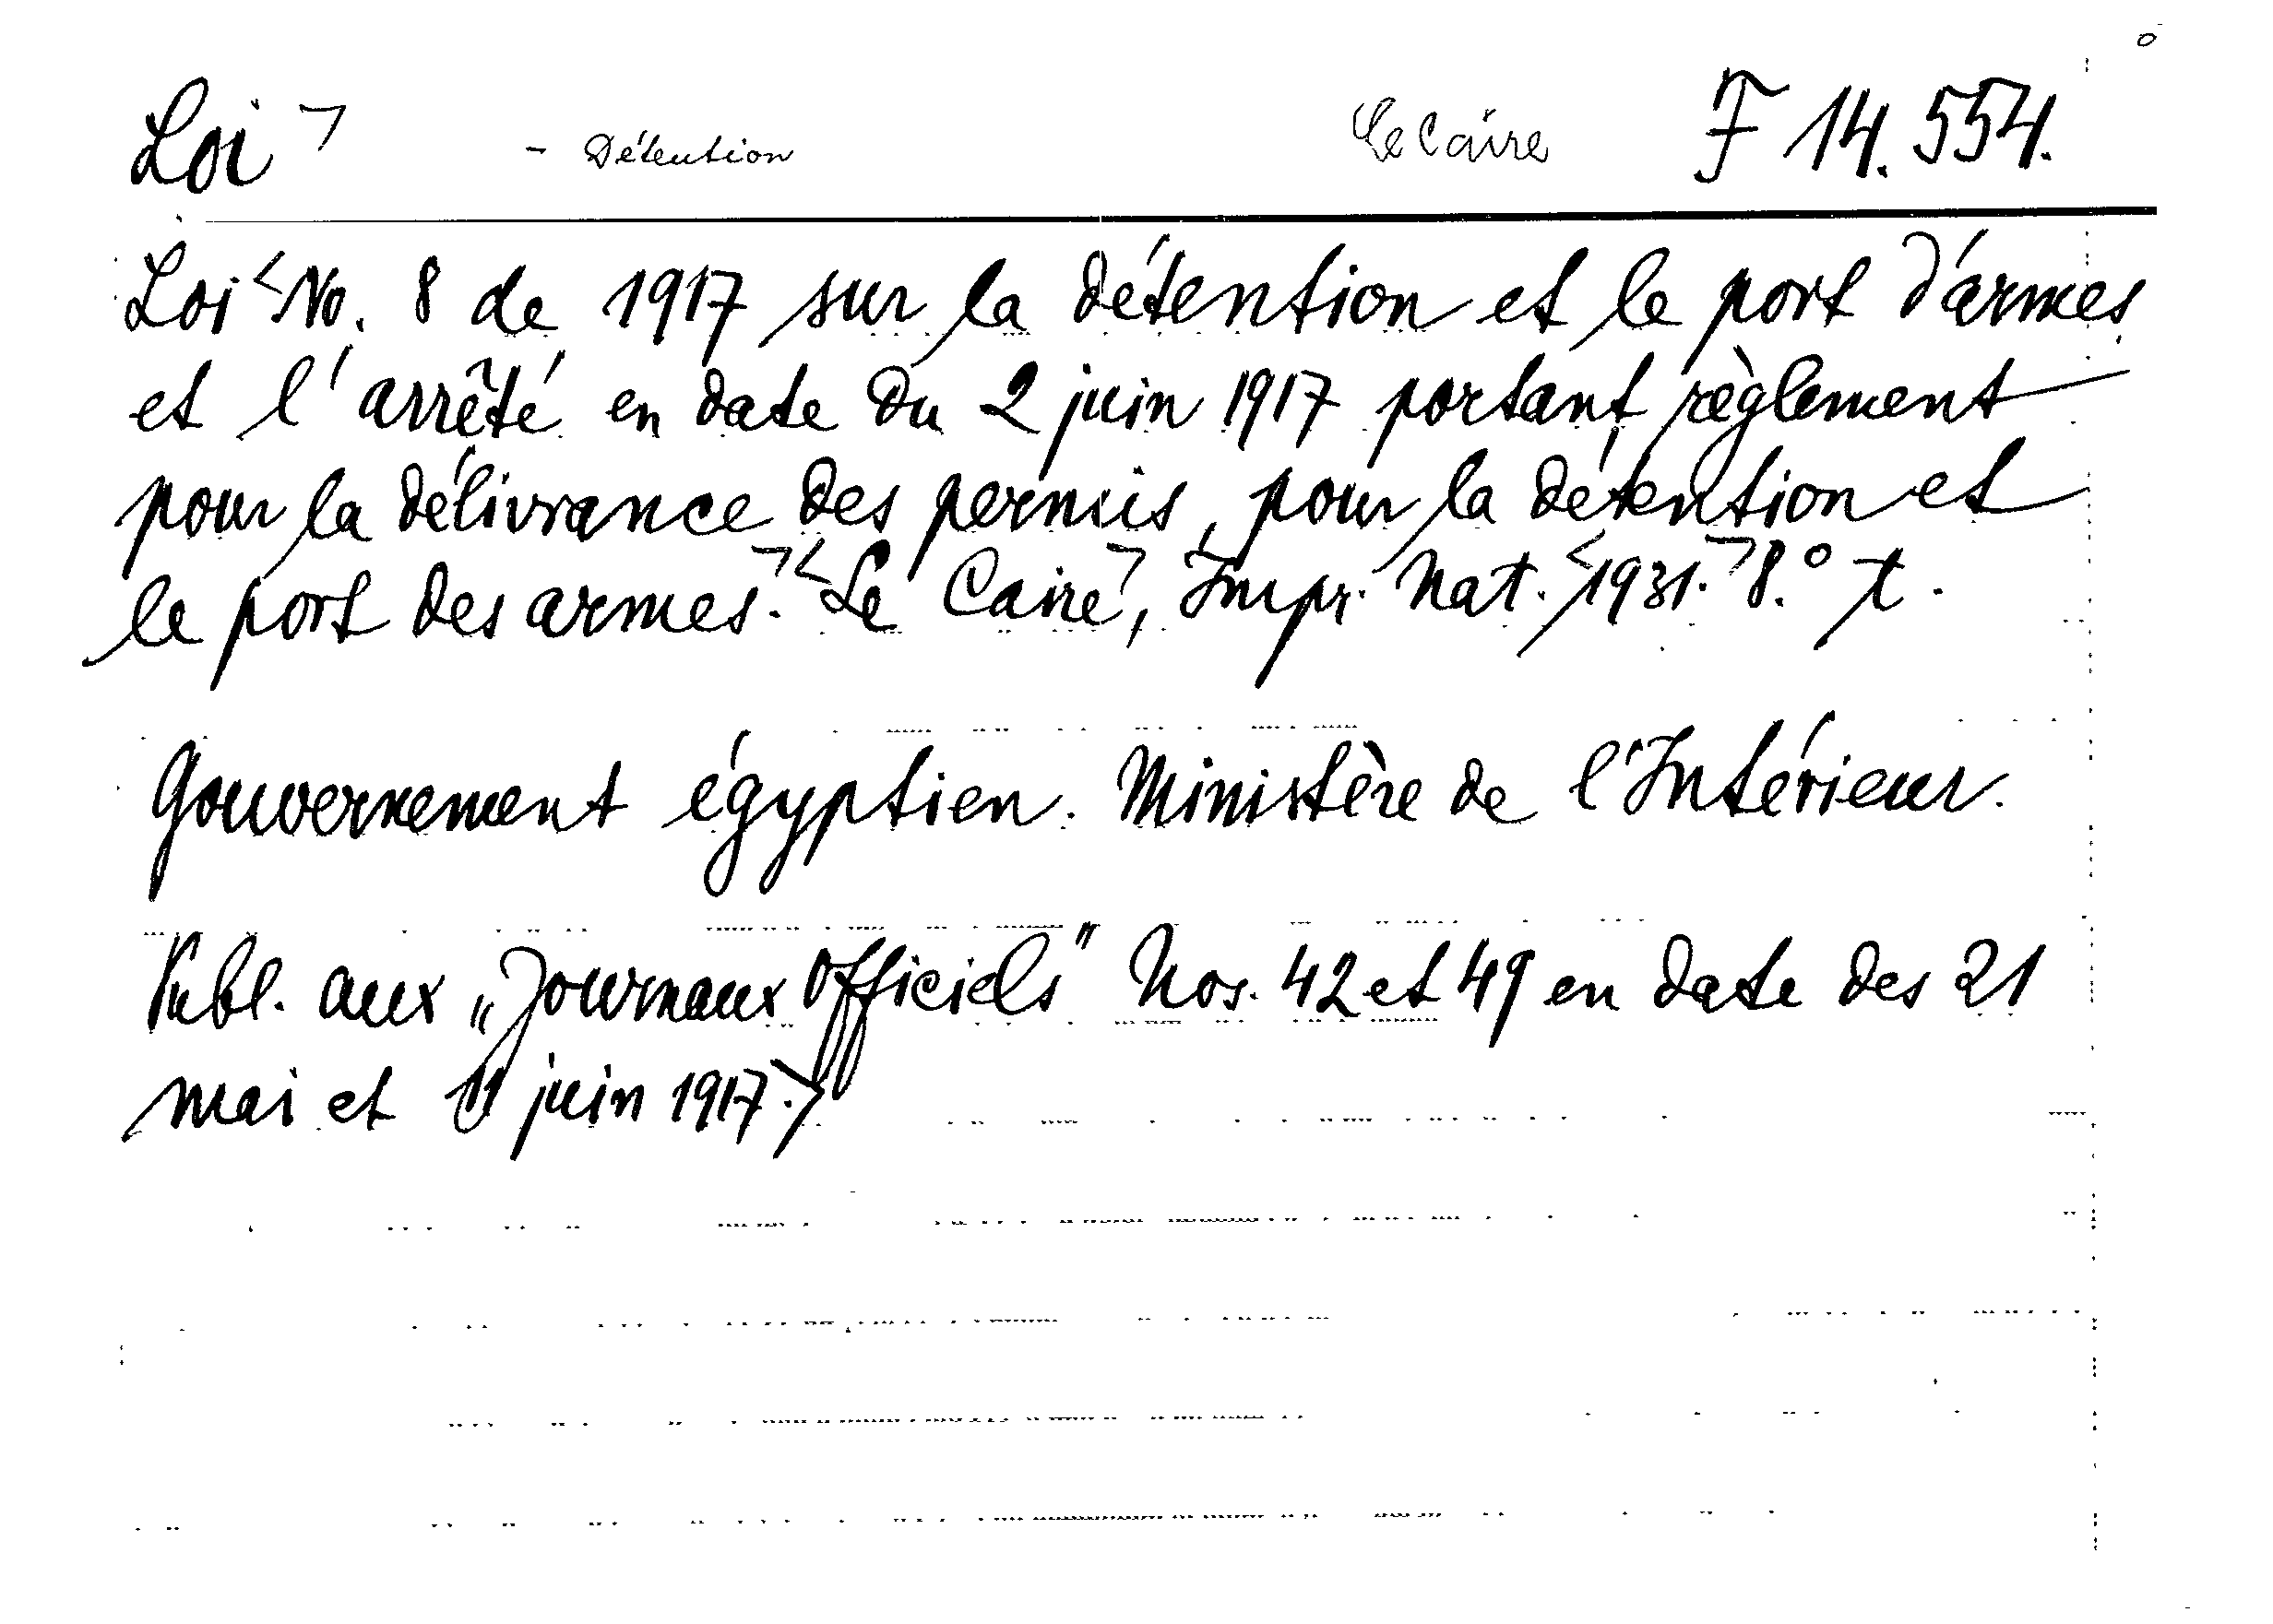 Loi ¬ - Détention Le Caire F 14.554.
Loi <No. 8 de 1917 sur la détention et le port d'armes
et l'arrêté en date du 2 juin 1917 portant règlement
pour la délivrance des permis, pour la détention et
le port des armes.¬ <Le Caire¬, Impr. Nat. <1931.¬ 8.° t.
Gouvernement égyptien. Ministère de l'Intérieur.
Publ. aux „Journaux Officiels" Nos. 42 et 49 en date des 21
mai et 11 juin 1917.>